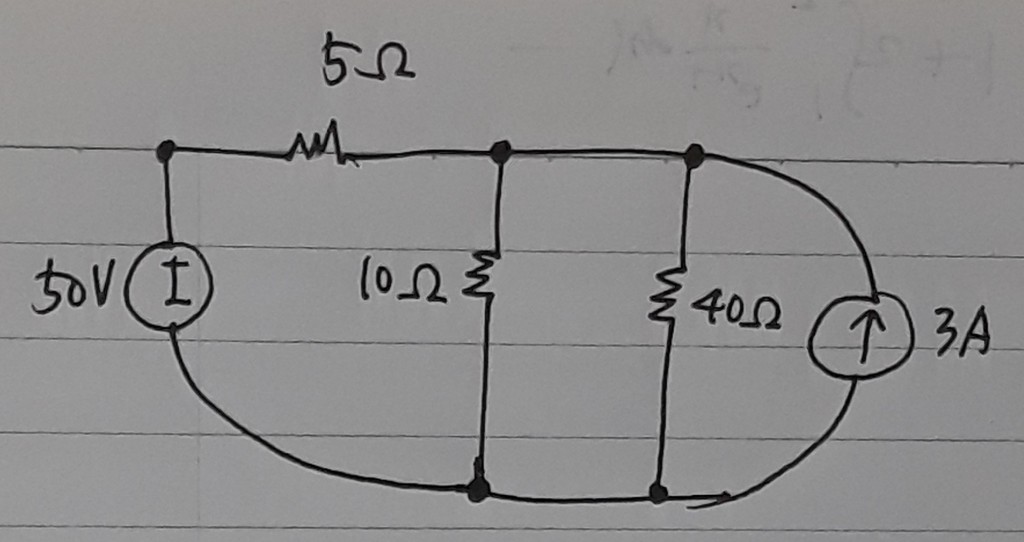 5Ω
50V
10Ω
40Ω
3A